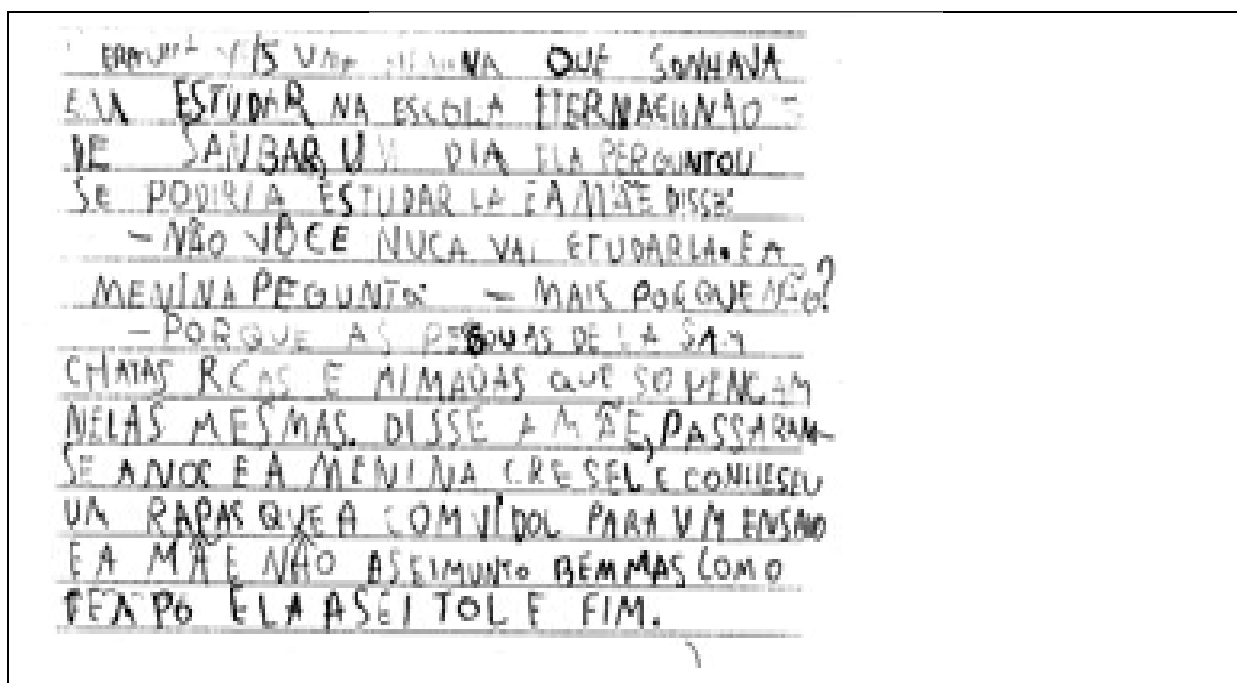 ERA UMA VEIS UMA MENINA QUE SONHAVA
EM ESTUDAR NA ESCOLA ITERNACIONAO
DE SANBAR, UM DIA ELA PERGUNTOU
SE PODIRIA ESTUDAR LA E A MÃE DISSE:
- NÃO VÔCE NUCA VAI ETUDAR LA. E A
MENINA PEGUNTA - MAIS PORQUE NÃO?
- PORQUE AS PESOUAS DE LA SAM
CHATAS RCAS E MIMADAS QUE SO PENÇAM
NELAS MESMAS. DISSE A MÃE, PASSARAM-
SE ANOS E A MENINA CRESEL E CONHESEU
UM RAPAS QUE A COMVIDOL PARA UM ENSAIO
E A MÃE NÃO ASEIMUNTO BEM MAS COM O
TEMPO ELA ASEITOL E FIM.